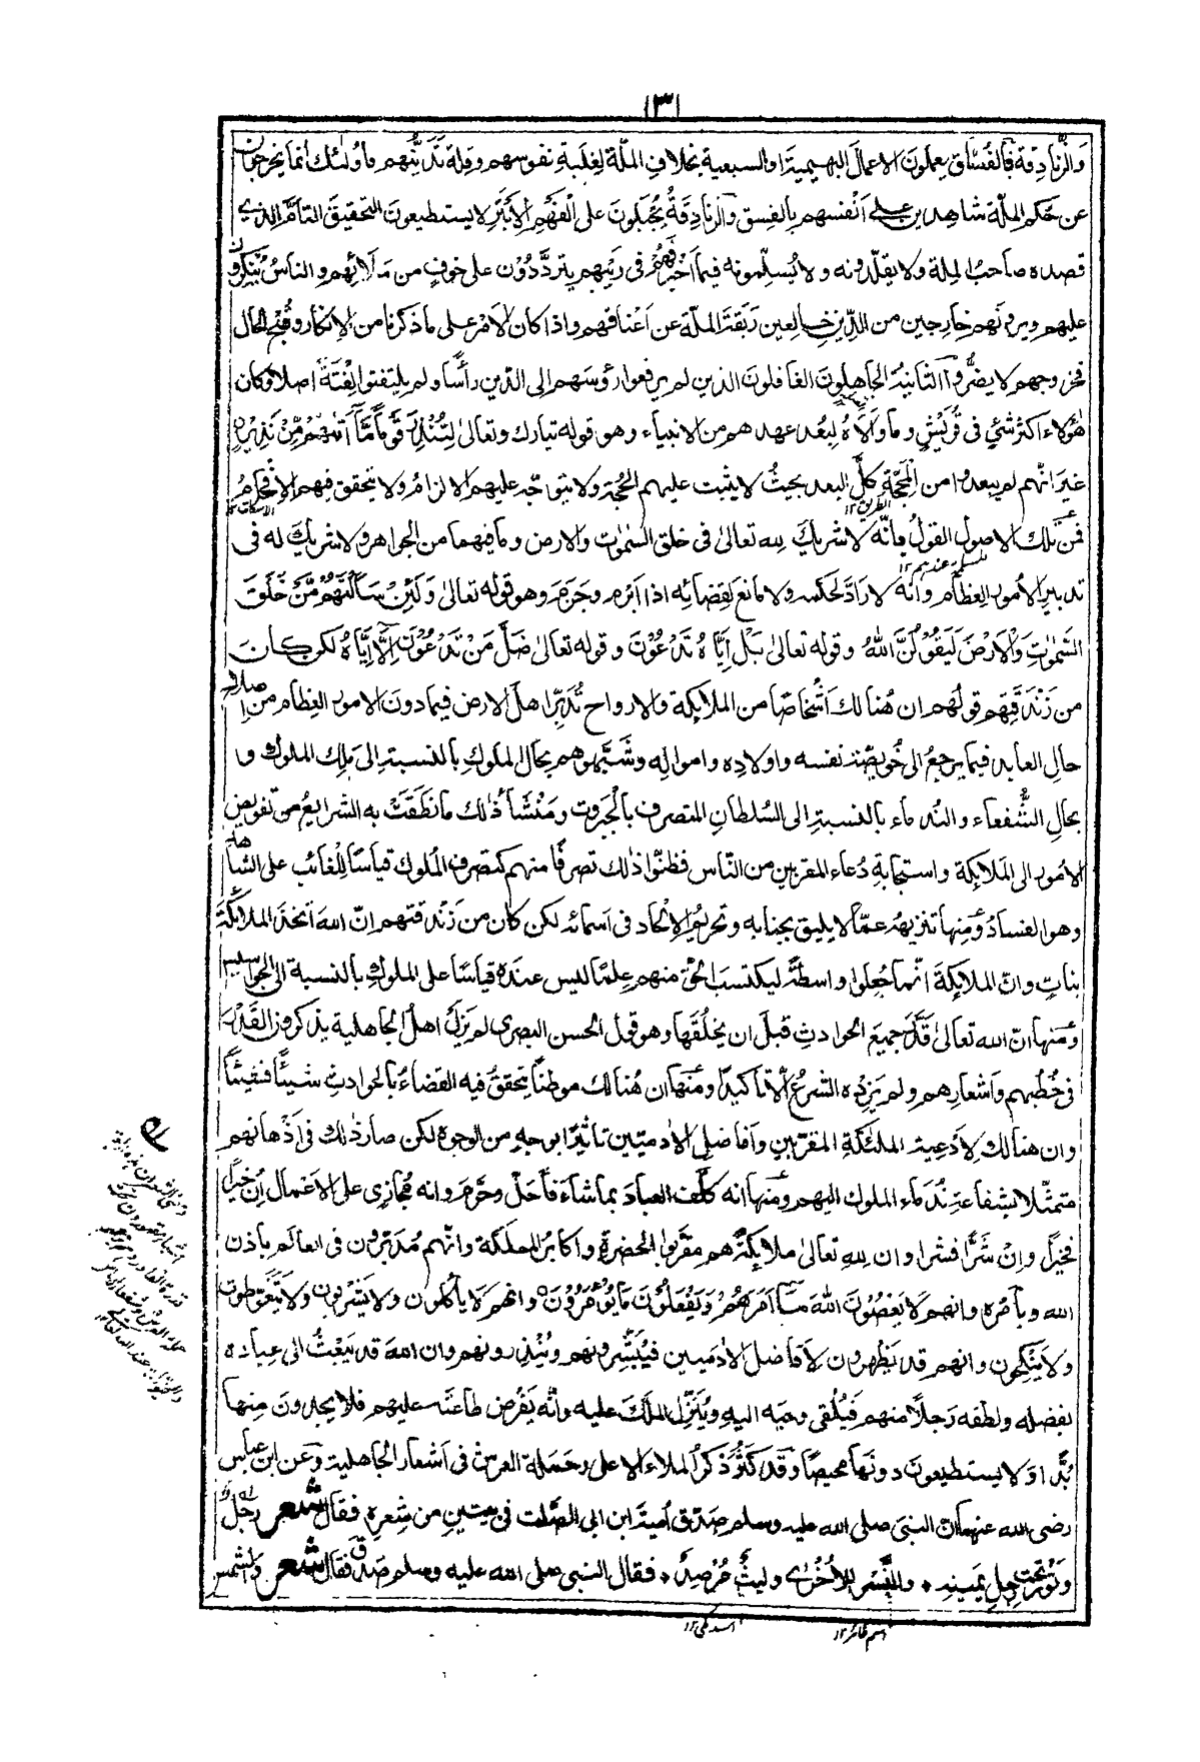 ١٣١
وَالزَّنادِقة فَالفُسّاق يعملون الاعمالَ البهيمية او السبعية بخلاف الملّة لِغلبةِ نفوسهم وقلة تَدَيُّنهم فاُولٰئك انما يخرجون
عن حكم الملّة شاهدين على اَنْفسهم بالفسق والزنادِقةُ يُجْبَلونَ على الفَهْمِ الاَبْتَر لا يستطيعون التحقيقَ التامَّ الذى
قصده صاحبُ الملة ولا يقلّدونه ولا يُسلّمونه فيما اَخْبر فهُمْ فى رَيبهم يتردّدُوْن على خوفٍ من مَلَائِهم والناسُ يُنْكرون
عليهم ويرونهم خارجين من الدِّين خالِعين رَبقةَ الملّة عن اَعْناقهم واذا كان الاَمْر على ما ذكرنا من الاِنكار وقُبْح الحال
فخروجهم لا يضرُّ وَالثانيةُ الجاهلونَ الغافلونَ الذين لم يرفعوا رؤسهم الى الدّين رأسًا ولم يلتفتوا لِفْتَةً اصلا وكان
هٰؤلاء اكثر شئٍ فى قُرَيْشٍ وما وَالَاهُ لِبُعد عهدهم من الانبياء وهو قوله تبارك وتعالىٰ لِتُنْذِرَ قَوْمًا مَّآ اَتٰىهُمْ مِّنْ نَذِيْرٍ
غيرَ انّهم لم يبعدوا من المَحَجَّةِ كلَّ البعد بحيثُ لا يثبت عليهم الحُجّة ولا يتوجّه عليهم الالزامُ ولا يتحقق فيهم الاِفْحَامُ
الطريق١٢
الاسكات ١٢
فمن تلك الاصول القولُ بِانّه لا شريكَ لله تعالىٰ فى خلق السّمٰوٰت والارض وما فيهما من الجواهر ولا شريكَ له فى
مسلمة عندهم ١٢
تدبير الاُمور العِظَام وَانّه لا رَادَّ لحكمه ولا مانعَ لقضائه اذا اَبْرم وجَزَمَ وهو قوله تعالىٰ وَلَئِنْ سَاَلْتَهُمْ مَّنْ خَلَقَ
السَّمٰوٰتِ وَالْاَرْضَ لَيَقُوْلُنَّ اللّٰهُ وقوله تعالىٰ بَلْ اِيَّاهُ تَدْعُوْنَ وقوله تعالىٰ ضَلَّ مَنْ تَدْعُوْنَ اِلَّا اِيَّاهُ لكن كان
من زَنْدقتِهم قولُهم ان هُنالك اَشْخاصًا من الملائكة والارواح تُدبِّر اهلَ الارض فيما دون الامور العِظام من اِصلاح
حالِ العابد فيما يرجعُ الى خُوَيصّة نفسه واولاده وامواله وشَبَّهوهم بحال الملوكِ بالنسبة الى مَلِك الملوك و
بحالِ الشُّفعاء والنُدماء بالنسبة الى السُلطانِ المتصرف بالجَبَروت ومَنْشَأ ذٰلك ما نَطَقَتْ به الشرايعُ من تفويض
الامُورِ الى المَلَائِكة واستجابةِ دُعاء المقربين من النّاس فظنّوا ذٰلك تصرفًا منهم كتصرف المُلوك قياسًا للغائب على الشاهد
وهو الفسادُ وَمِنها تنزيهُه عمّا لا يليق بجنابه وتحريمُ الاِلحاد فى اَسمائه لكن كان من زَنْدقتهم انّ اللهَ اتخذ الملائكةَ
بناتٍ وانّ الملائكةَ انّما جُعِلوا واسطةً ليكتسبَ الحقّ منهم عِلمًا ليس عندَه قياسًا على الملوك بالنسبة الى الجواسيس
وَمنها انّ الله تعالىٰ قَدَّر جميعَ الحوادثِ قبلَ ان يخلُقَها وهو قول الحسن البصرى لم يَزَل اهلُ الجاهلية يذكرون القَدَر
فى خُطَبهم واَشعارهم ولم يَزِدْه الشرعُ الّا تاكيدًا ومنها ان هُنالك موطنًا يتحققُ فيه القضاءُ بالحوادثِ شيئًا فشيئًا
وان هنالك لِاَدْعِية الملٰئكةِ المقرّبينِ واَفاضلِ الاٰدمِيّين تاثيرًا بوجهٍ من الوجوه لكن صار ذٰلك فى اَذْهانهم
متمثّلا بشفاعةِ نُدَماء الملوك اليهم ومنها انه كلّفَ العبادَ بما شاءَ فاَحلّ وحَرّمَ وانه مُجازى على الاَعمال اِن خيرًا
فخيرًا واِنْ شرًّا فشرا وان لِلّه تعالىٰ ملائكةً هم مقرّبوا الحضرةِ واكابرُ المملكة وانّهم مُدبّرون فى العالَم باذن
الله وباَمره وانهم لَا يَعْصُوْنَ اللّٰهَ مَآ اَمَرَهُمْ وَيَفْعَلُوْنَ مَا يُؤْمَرُوْنَ وانهم لَا يأكلون ولا يشربون ولا يتغوّطون
ولا يَنْكِحُون وانهم قد يَظْهرون لِاَفاضل الاٰدميين فيُبشِّرونهم ويُنْذرونهم وان الله قد يَبْعَثُ الى عِباده
بفضله ولطفه رَجلاً منهم فَيُلْقى وحيَه اليهِ ويُنَزّل الملَك عليه وانّه يَفْرض طاعتَه عليهم فلا يجدون مِنها
بُدًّا ولا يستطيعون دونَها محيصًا وقد كَثُر ذكرُ الملاء الاعلى وحَمَلة العرش فى اَشعار الجاهلية وعن ابن عباس
رضى الله عنهما ان النبىَ صلى الله عليه وسلم صَدّق اُميةَ ابن ابى الصَّلت فى بيتينِ من شِعرِه فقال شعر رجلٌ
وثورٌ تحتَ رِجلِ يَمينِه ٭ والنَّسر للاُخْرٰى وليثٌ مُرْصِدٌ ٭ فقال النبى صلى الله عليه وسلم صَدق فقال شعر والشمس
اسم طائر ١٢